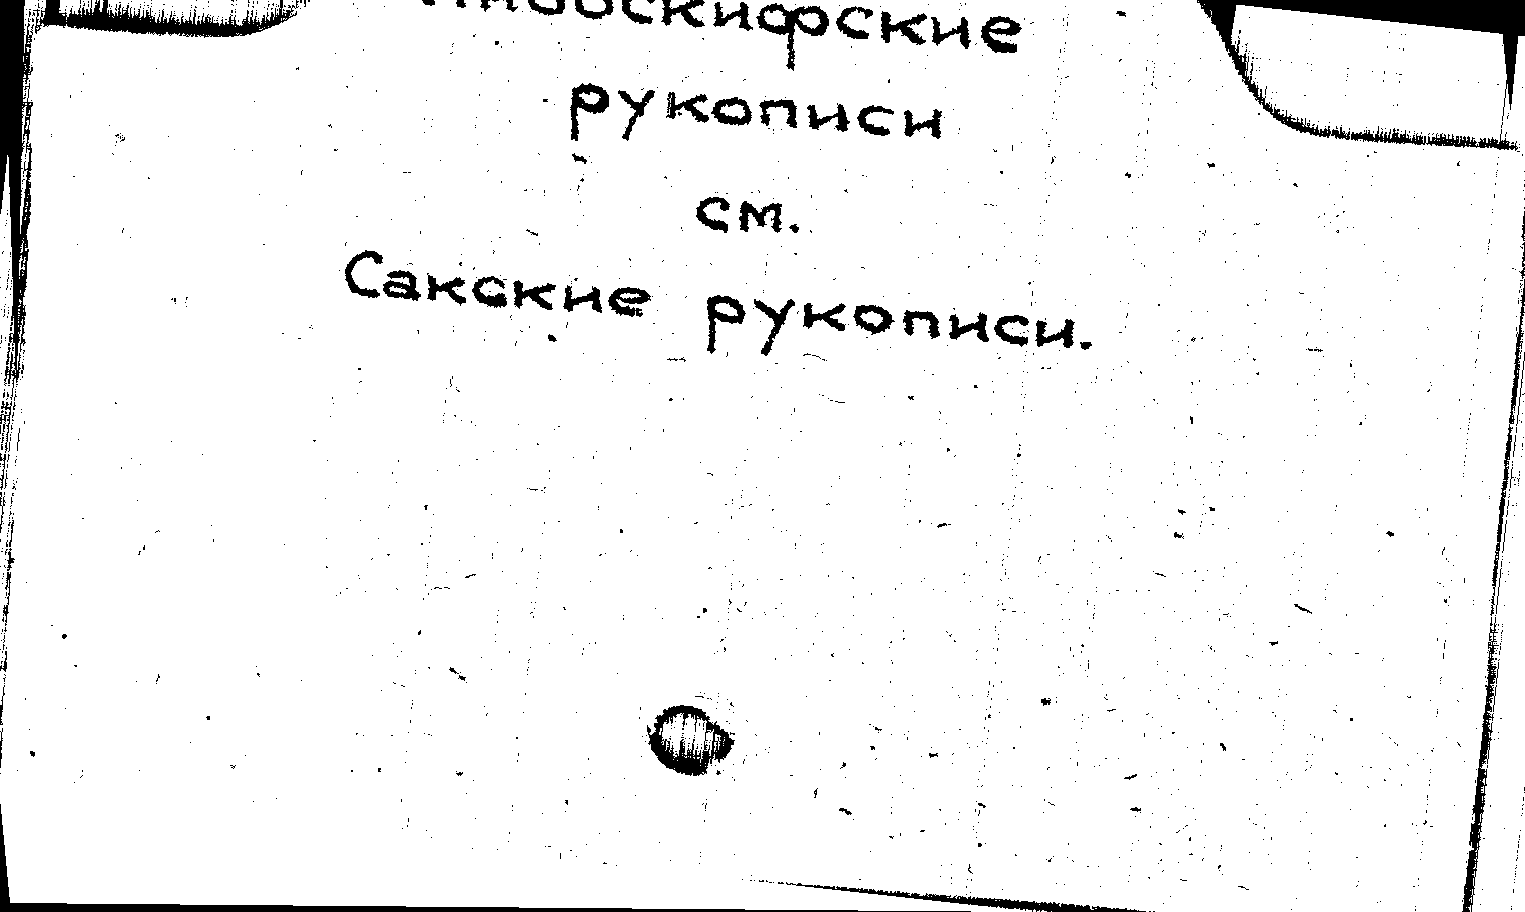 Индоскифские
рукописи
см.
Сакские рукописи.